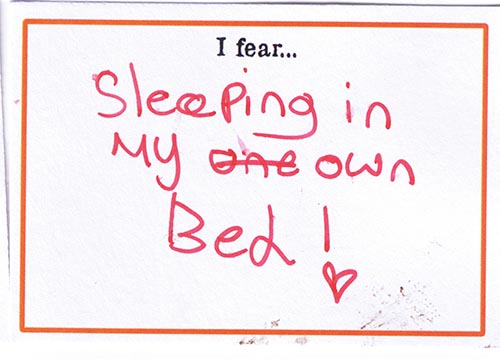 I fear...
Sleeping in
My one own
Bed !